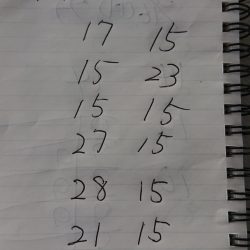 17 15
15 23
15 15
27 15
28 15
21 15